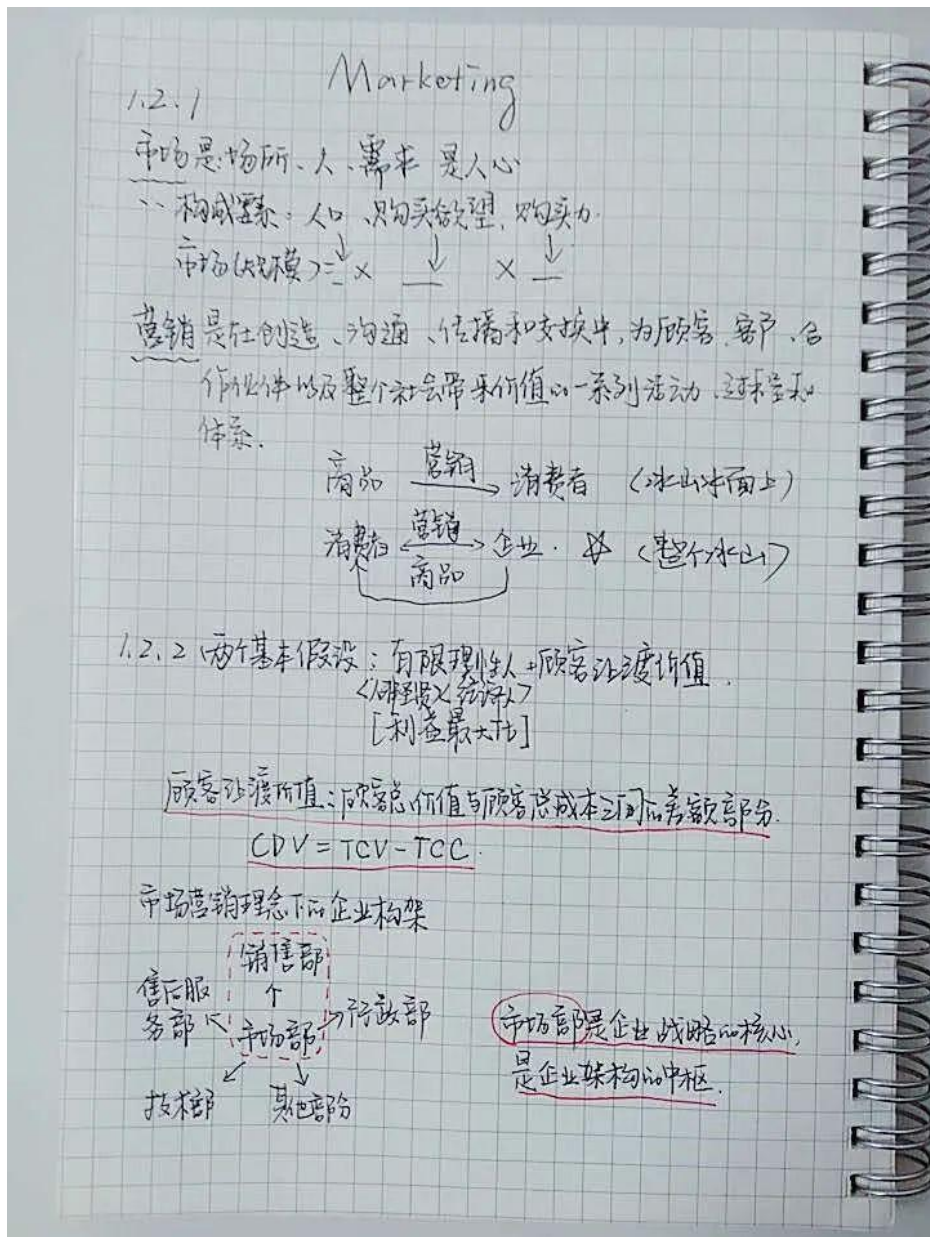 Marketing
1.2.1
市场是:场所、人、需求 是人心
构成要素:人口、购买欲望、购买力
市场(规模)=_ × _ × _
营销是在创造、沟通、传播和交换中,为顾客、客户、合
作伙伴以及整个社会带来价值的一系列活动、过程和
体系.
商品 营销 消费者 (冰山冰面上)
消费者 营销 企业. ☆ (整个冰山)
商品
1.2.2 两个基本假设:有限理性人+顾客让渡价值.
<经济人>
[利益最大化]
顾客让渡价值:顾客总价值与顾客总成本之间的差额部分.
CDV=TCV-TCC.
市场营销理念下的企业构架
销售部
售后服
务部 市场部 行政部
技术部 其他部分
市场部是企业战略的核心,
是企业架构的中枢.